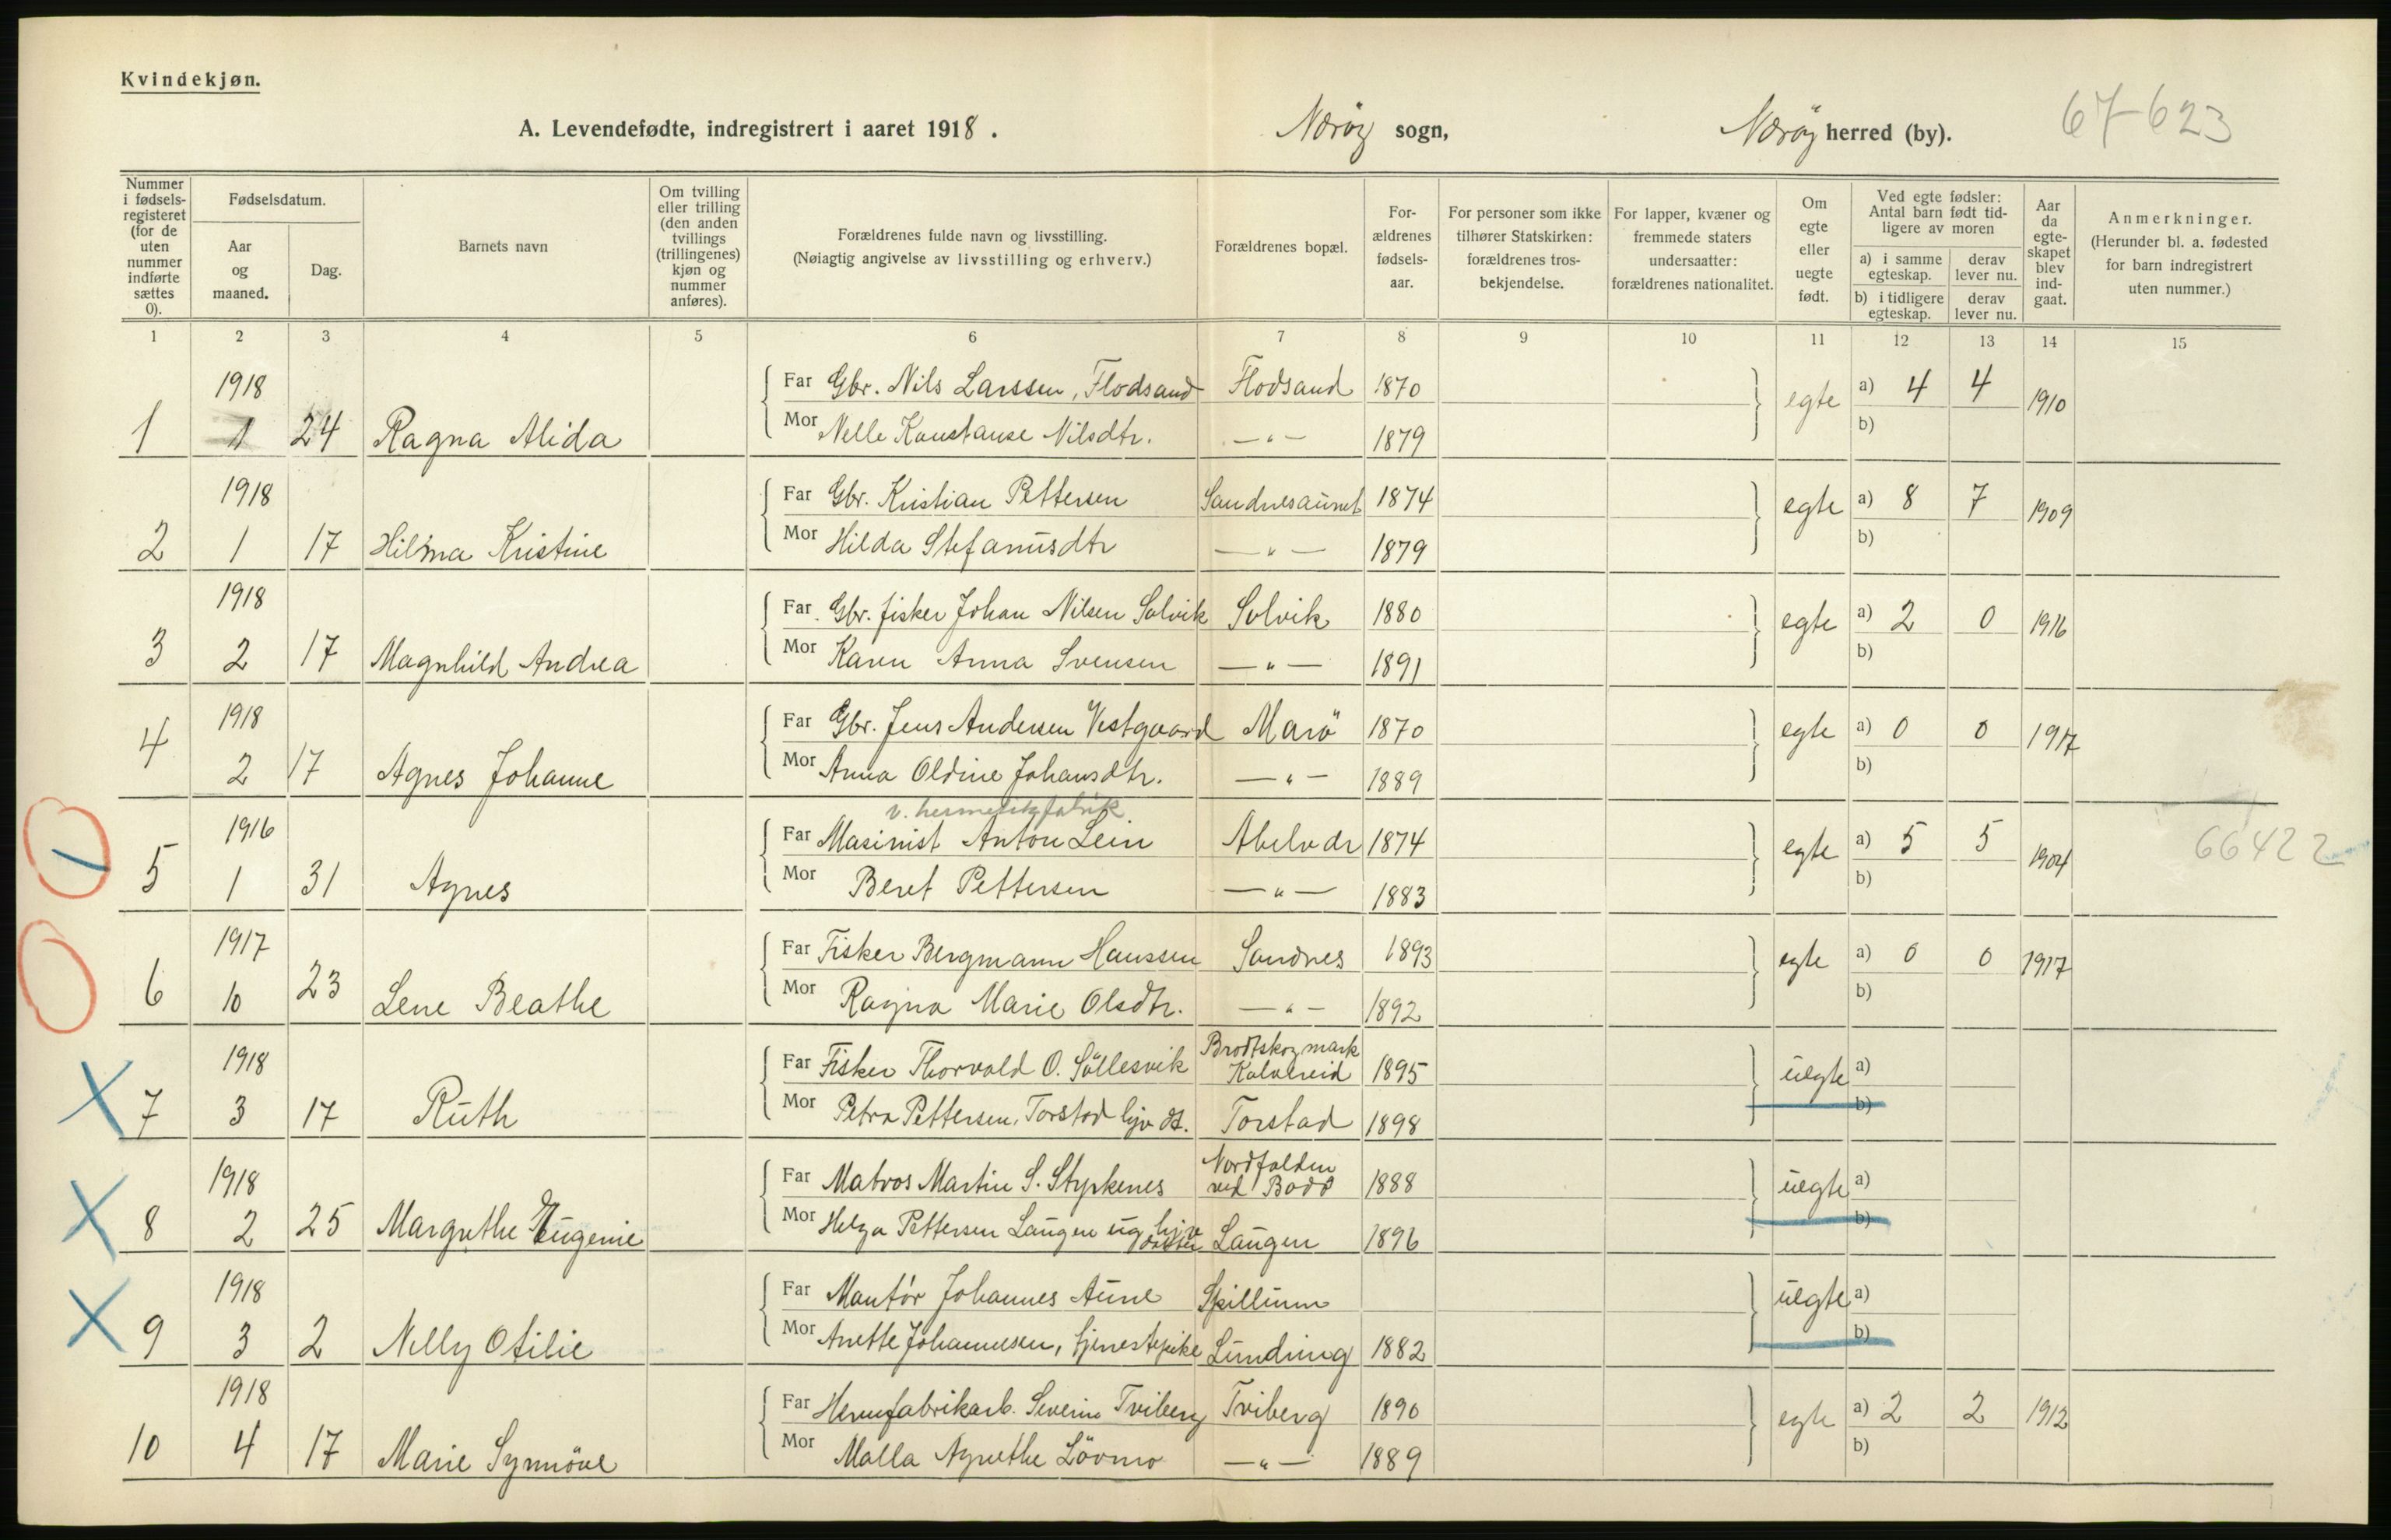 Kvindekjøn.
A. Levendefødte, indregistrert i aaret 1918. Nærøy sogn, Nærøy herred (by). 67-623
Nummer i fødsels-registeret (for de uten nummer indførte sættes 0).
Fødselsdatum.
Aar og maaned.
Dag.
Barnets navn
Om tvilling eller trilling (den anden tvillings (trillingenes) kjøn og nummer anføres).
Forældrenes fulde navn og livsstilling.
(Nøiagtig angivelse av livsstilling og erhverv.)
Forældrenes bopæl.
For-ældrenes fødsels-aar.
For personer som ikke tilhører Statskirken: forældrenes tros-bekjendelse.
For lapper, kvæner og fremmede staters undersaatter: forældrenes nationalitet.
Om egte eller uegte født.
Ved egte fødsler: Antal barn født tid-ligere av moren
a) i samme egteskap.
derav lever nu.
b) i tidligere egteskap.
derav lever nu.
Aar da egte-skapet blev ind-gaat.
Anmerkninger.
(Herunder bl. a. fødested for barn indregistrert uten nummer.)
1 2 3 4 5 6 7 8 9 10 11 12 13 14 15
1918 Far Gbr. Nils Larssen, Flodsand Flodsand 1870 egte a) 4 4 1910
1 1 24 Ragna Alida Mor Nelle Konstanse Nilsdtr. —"— 1879 b)
1918 Far Gbr. Kristian Pettersen Sandnesaunet 1874 egte a) 8 7 1909
2 1 17 Hilma Kristine Mor Hilda Stefanusdtr —"— 1879 b)
1918 Far Gbr. fisker Johan Nilsen Solvik Solvik 1880 egte a) 2 0 1916
3 2 17 Magnhild Andrea Mor Karen Anna Svensen —"— 1891 b)
1918 Far Gbr. Jens Andersen Vestgaard Marö 1870 egte a) 0 0 1917
4 2 17 Agnes Johanne Mor Anna Oldine Johansdtr. —"— 1889 b)
v. hermetikfabrik
1916 Far Masinist Anton Lein Abelvær 1874 egte a) 5 5 1904 66422
5 1 31 Agnes Mor Beret Pettersen —"— 1883 b)
1917 Far Fisker Bergmann Hanssen Sandnes 1893 egte a) 0 0 1917
6 10 23 Lene Beathe Mor Ragna Marie Olsdtr. —"— 1892 b)
1918 Far Fisker Thorvald O. Söllesvik Brodtskogmark Kalvereid 1895 uegte a)
7 3 17 Ruth Mor Petra Pettersen, Torstad hjv dt. Torstad 1898 b)
1918 Far Matros Martin S. Styrkenes Nordfolden ved Bodø 1888 uegte a)
8 2 25 Margrethe Eugenie Mor Helga Pettersen Laugen ug hjv datter Laugen 1896 b)
1918 Far Montör Johannes Aune Spillum uegte a)
9 3 2 Nelly Otilie Mor Anette Johannesen, tjenestepike Lundring 1882 b)
1918 Far Hermfabrikarb. Severin Tviberg Tviberg 1890 egte a) 2 2 1912
10 4 17 Marie Synnöve Mor Malla Agnethe Lövmo —"— 1889 b)